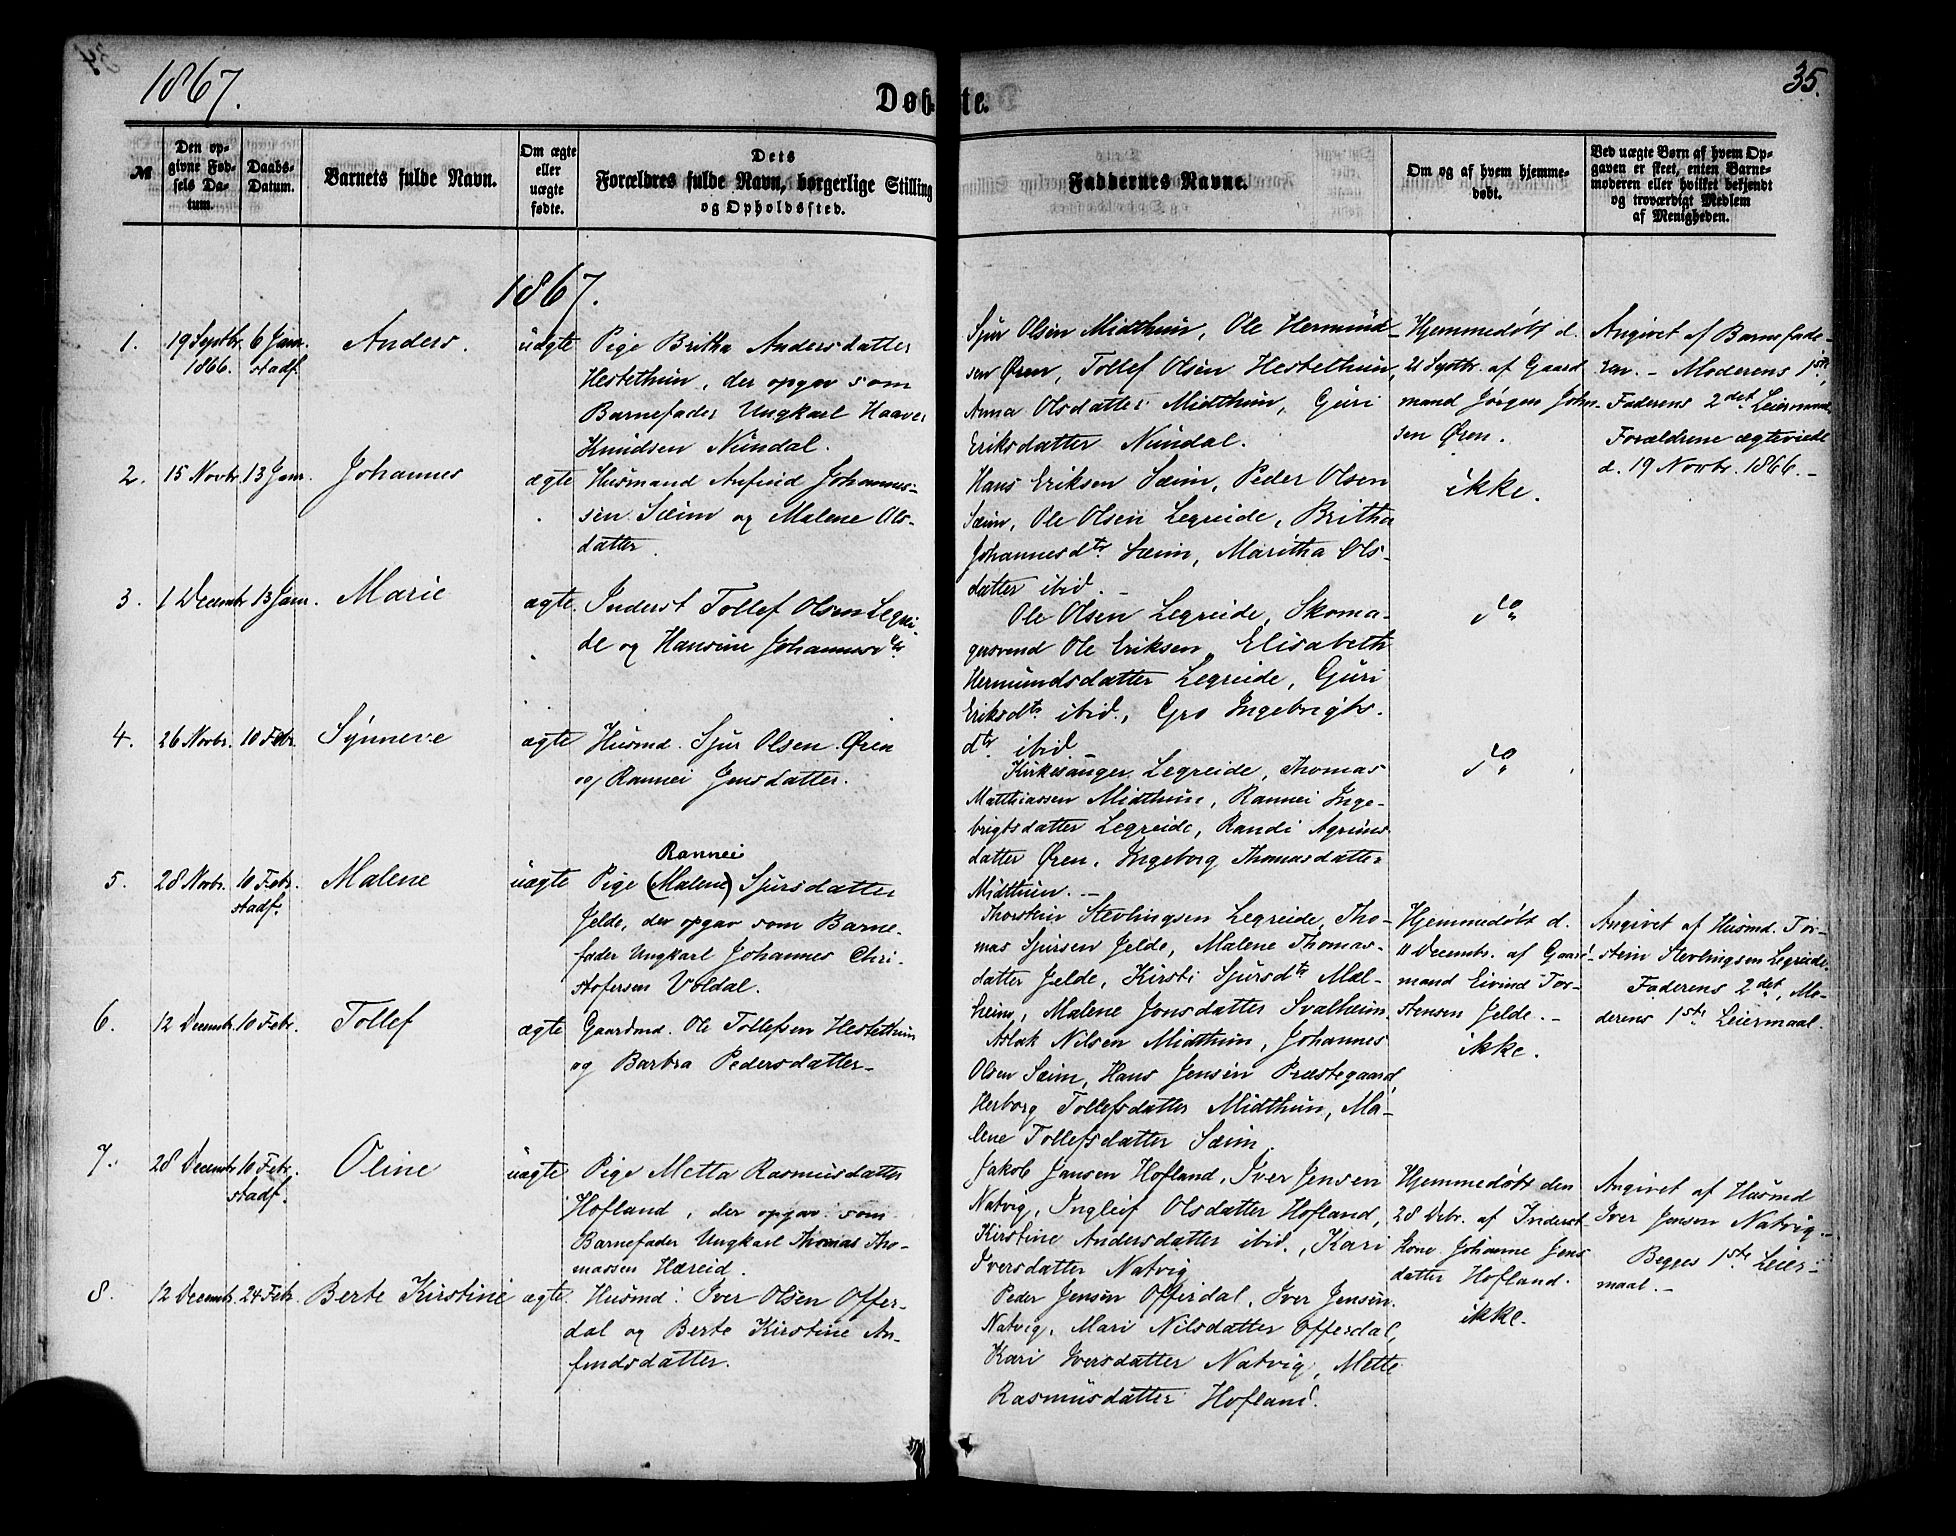 1867.
Døbte.
35.
№
Den opgivne Fødsels Datum.
Daabs-Datum.
Barnets fulde Navn.
Om ægte eller uægte fødte.
Dets Forældres fulde Navn, borgerlige Stilling og Opholdssted.
Faddernes Navne.
Om og af hvem hjemmedøbt.
Ved uægte Børn af hvem Opgaven er skeet, enten Barnemoderen eller hvilket bekjendt og troværdigt Medlem af Menigheden.
1867.
1.
19 Septbr. 1866.
6 Janr. stadf.
Anders.
uægte
Pige Britha Andersdatter
Hestethun, der opgav som
Barnefader Ungkarl Haaver
Knudsen Nundal.
Sjur Olsen Midthun, Ole Hermund-
sen Øren, Tollef Olsen Hestethun,
Anna Olsdatter Midthun, Guri
Eriksdatter Nundal.
Hjemmedøbt d.
21 Septbr. af Gaard
mand Jørgen John-
sen Øren.
Angivet af Barnefade-
ren. – Moderens 1ste,
Faderens 2det Leiermaal
Forældrene ægteviede
d. 19 Novbr. 1866. –
2.
15 Novbr.
13 Janr.
Johannes
ægte
Husmand Anfind Johannes-
sen Sæim og Malene Ols-
datter.
Hans Eriksen Sæim, Peder Olsen
Sæim, Ole Olsen Legreide, Britha
Johannesdtr Sæim, Maritha Ols-
datter ibid. –
ikke.
3.
1 Decembr
13 Janr.
Marie
ægte.
Inderst Tollef Olsen Legrei-
de og Hansine Johannesdtr
Ole Olsen Legreide, Skoma-
gersvend Ole Eriksen, Elisabeth
Hermundsdatter Legreide, Guri
Eriksdtr ibid., Gro Ingebrigts-
dtr ibid –
do
4.
26 Novbr.
10 Febr.
Synneve
ægte
Husmd. Sjur Olsen Øren
og Rannei Jensdatter.
Kirkesanger Legreide, Thomas
Matthiassen Midthun, Rannei Inge-
brigtsdatter Legreide, Randi Agriuns
datter Øren, Ingeborg Thomasdatter
Midthun. –
do
5.
28 Novbr.
10 Febr. stadf.
Malene
uægte
Rannei
Pige (Malene) Sjursdatter
Jelde, der opgav som Barne-
fader Ungkarl Johannes Chri-
stofersen Voldal.
Thorstein Stevlingsen Legreide, Tho-
mas Sjursen Jelde, Malene Thomas-
datter Jelde, Kirsti Sjursdtr Mæl-
heim, Malene Jonsdatter Svalheim
Hjemmedøbt d.
11 Decembr. af Gaard-
mand Eivind Tor-
stensen Jelde. –
Angivet af Husmd. Tor-
stein Stevlingsen Legreide.
Faderens 2det, Mo-
derens 1ste Leiermaal.
6.
12 Decembr
10 Febr.
Tollef
ægte
Gaardmd. Ole Tollefsen Hestethun
og Barbra Pedersdatter –
Aslak Nilsen Midthun, Johannes
Olsen Sæim, Hans Jensen Præstegaard,
Herborg Tollefsdatter Midthun, Ma-
lene Tollefsdatter Sæim.
ikke.
7.
28 Decembr
10 Febr. stadf.
Oline
uægte
Pige Metta Rasmusdatter
Hofland, der opgav som
Barnefader Ungkarl Thomas Tho-
massen Hæreid.
Jakob Jansen Hofland, Iver Jensen
Natvig, Ingleif Olsdatter Hofland,
Kirstine Andersdatter ibid., Kari
Iversdatter Natvig
Hjemmedøbt den
28 Debr. af Inderst
kone Johanne Jens
datter Hofland.
Angivet af Husmd
Iver Jensen Natvig. –
Begges 1ste Leier-
maal. –
8.
12 Decembr.
24 Febr.
Berte Kirstine
ægte.
Husmd. Iver Olsen Offer-
dal og Berte Kirstine An-
findsdatter.
Peder Jensen Offerdal, Iver Jensen
Natvig, Mari Nilsdatter Offerdal,
Kari Iversdatter Natvig, Mette
Rasmusdatter Hofland.
ikke.